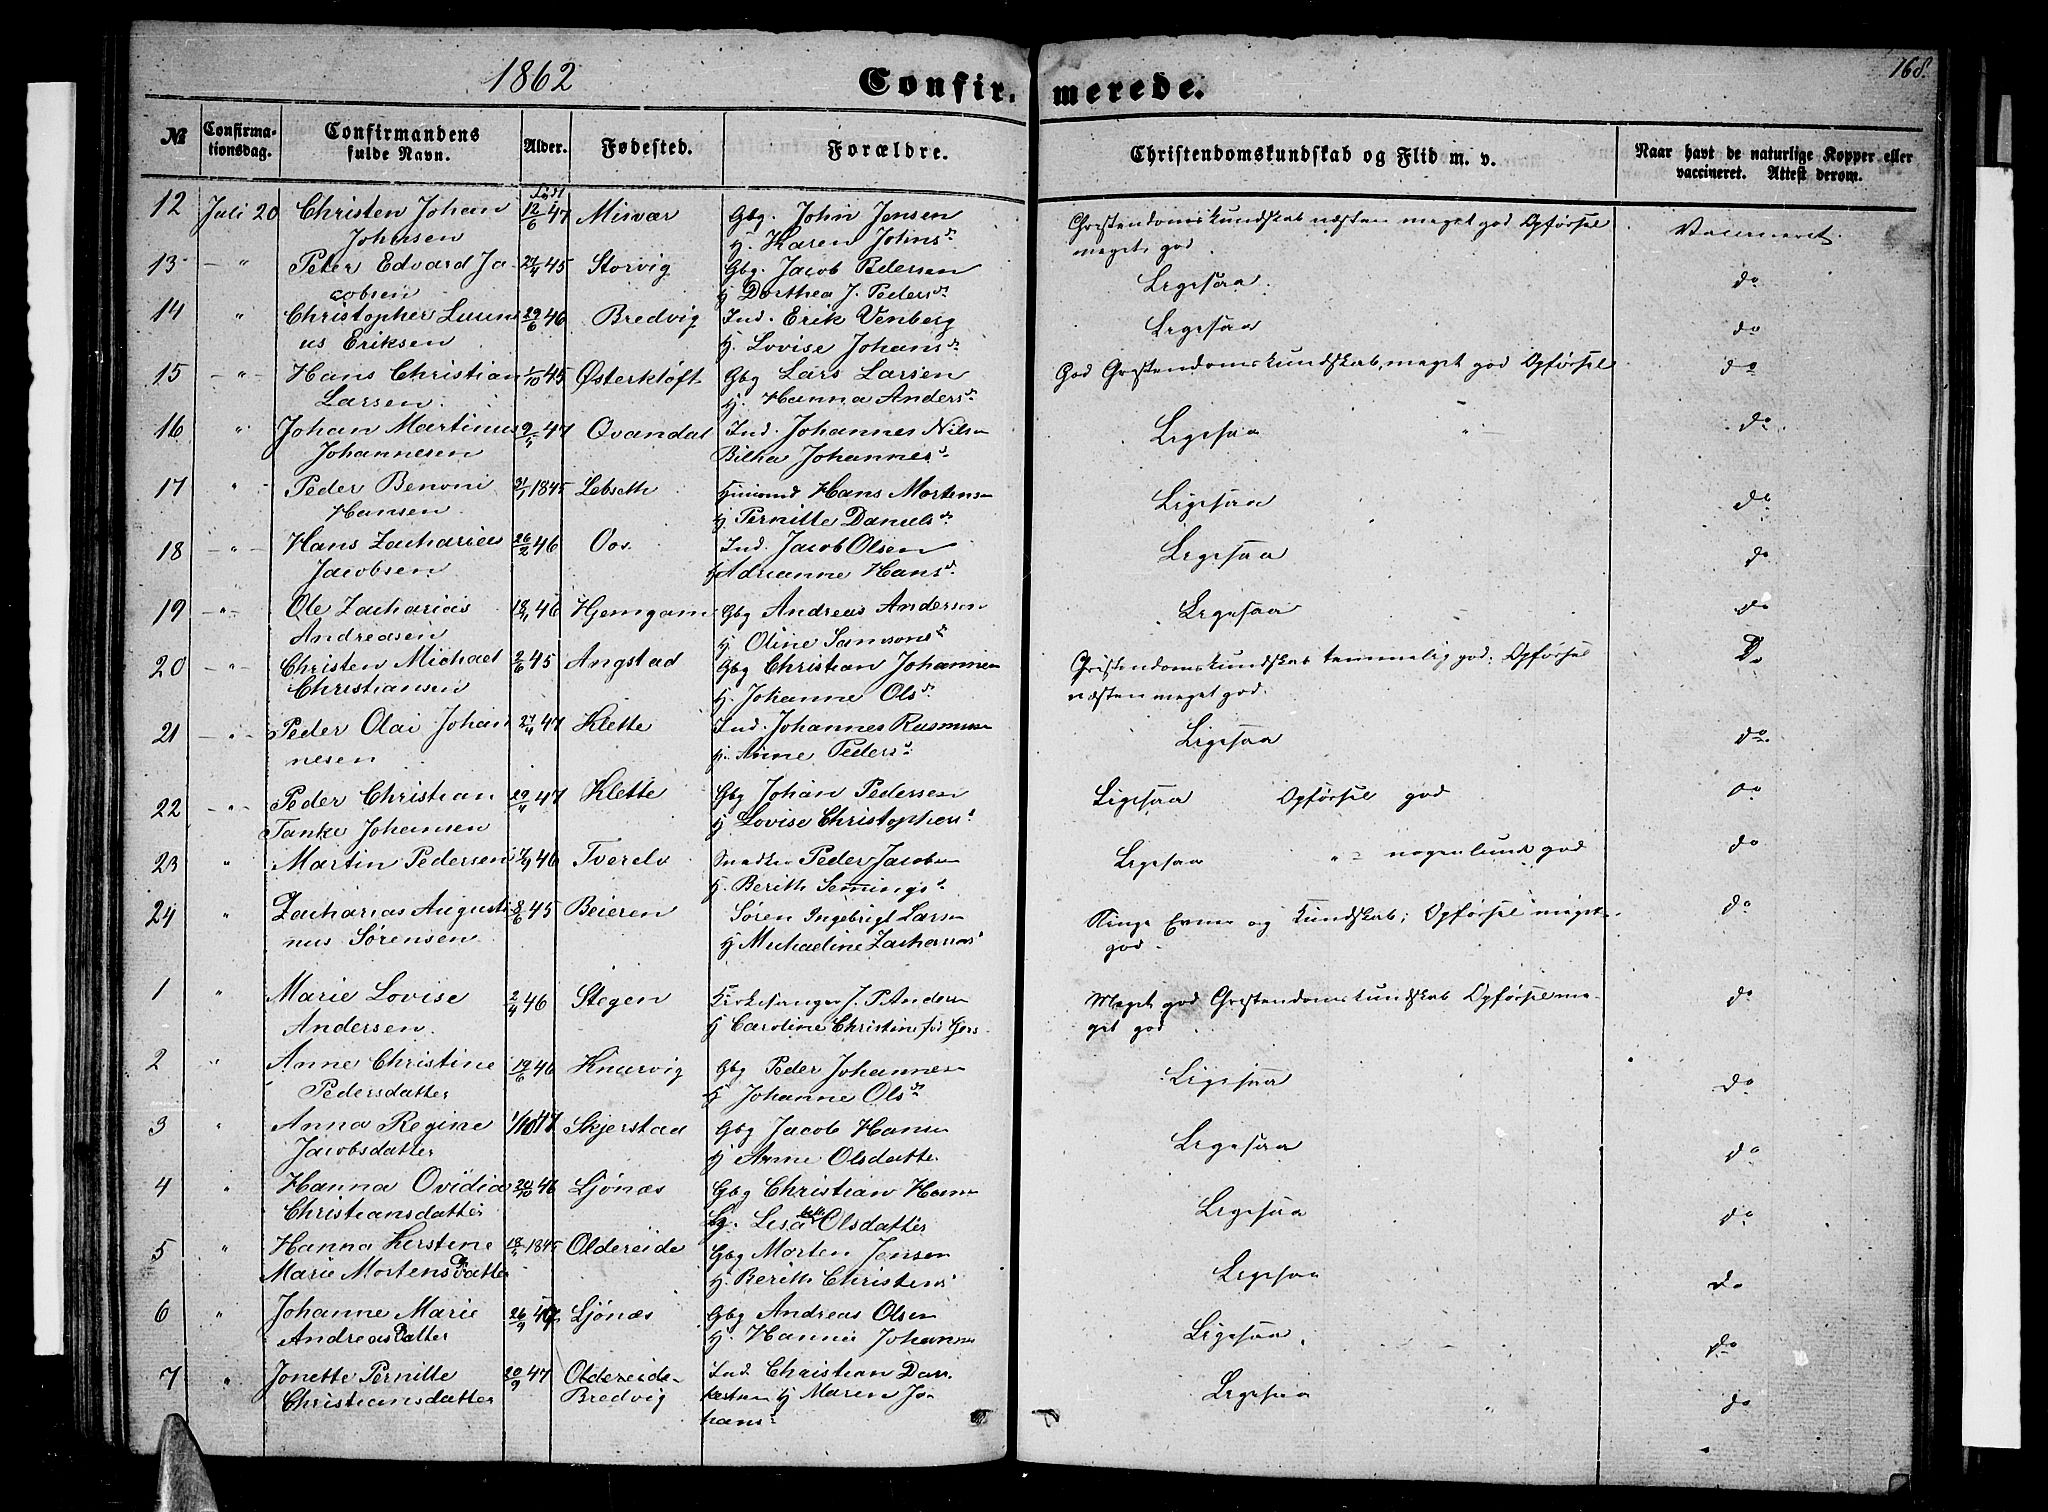 1862 Confir- merede. 168.
№ Confirma-tionsdag. Confirmandens fulde Navn. Alder. Fødested. Forældre. Christendomskundskab og Flid m. v. Naar havt de naturlige Kopper eller vaccineret. Attest derom.
Født
12 Juli 20 Christen Johan 12/6 47 Misvær Gbg. John Jensen Christendomskundskab næsten meget god Opførsel Vaccineret
Johnsen H. Karen Johnsd. meget god
13 - " Peter Edvard Ja 21/4 45 Storvig Gbg. Jacob Pedersen Ligesaa do
cobsen H Dorthea J. Pedersdr
14 " Christopher Luun 29/6 46 Bredvig Ind. Erik Venberg Ligesaa do
us Eriksen H. Lovise Johansdr
15 - " - Hans Christian 1/10 45 Østerkløft Gbg Lars Larsen God Christendomskundskab, meget god Opførsel do
Larsen H. Hanna Andersdr
16 " Johan Martinus 2/4 47 Qvandal Ind. Johannes Nilsen Ligesaa do
Johannesen Bilha Johannesd.
17 " Peder Benoni 21/1 1845 Lebseth Huusmd Hans Mortensen Ligesaa do
Hansen H Pernille Danielsdr
18 - " - Hans Zacharias 26/2 46 Oos Ind. Jacob Olsen Ligesaa do
Jacobsen H Adrianne Hansd.
19 - " - Ole Zacharias 18/4 46 Hjemgam Gbg Andreas Andersen Ligesaa do
Andreasen H Oline Samsonsdr
20 - " - Christen Michael 2/6 45 Angstad Gbg Christian Johannesen Christendomskundskab temmelig god; Opførsel Do
Christiansen H. Johanne Olsdr næsten meget god.
21 - " - Peder Olai Johan 27/4 47 Klette Ind. Johannes Rasmussen Ligesaa do
nesen H. Anne Pedersd
22 - " - Peder Christian 29/4 47 Klette Gbg Johan Pedersen Ligesaa Opførsel god do
Tanke Johansen H Lovise Christophersd
23 " Martin Pedersen 1/9 46 Tverelv Snedker Peder Jacobsen Ligesaa " nogenlunde god do
H. Berith Semmingsd
24 " Zacharias Augusti 8/6 45 Beieren Søren Ingebrigt Larsen Ringe Evner og Kundskab; Opførsel meget do
nus Sørensen H Michaeline Zachariasd god
1 " Marie Lovise 2/4 46 Stegen Kirkesanger J. P. Andersen Meget god Christendomskundskab Opførsel me- do
Andersen H Caroline Christine get god
2 " Anne Christine 19/6 46 Knarvig Gbg Peder Johannesen Ligesaa do
Pedersdatter H Johanne Olsdr
3 " Anna Regine 1/10 47 Skjerstad Gbg Jacob Hansen Ligesaa do
Jacobsdatter H Anne Olsdatter
4 " Hanna Ovidia 20/10 46 Ljønæs Gbg Christian Hansen Ligesaa do
Christiansdatter H. Lisa Olsdatter
5 " Hanna Kerstine 18/4 1845 Oldereide Gbg Morten Jensen Ligesaa do
Marie Mortens Datter H. Berith Christensd
6 " Johanne Marie 26/9 47 Ljønæs Gbg Andreas Olsen Ligesaa do
Andreas Datter H. Hanna Johannes
7 " Jonette Pernille 20/9 47 Oldereide Ind Christian Dan Ligesaa do
Christiansdatter Bredvig H Maren Jo
hansd